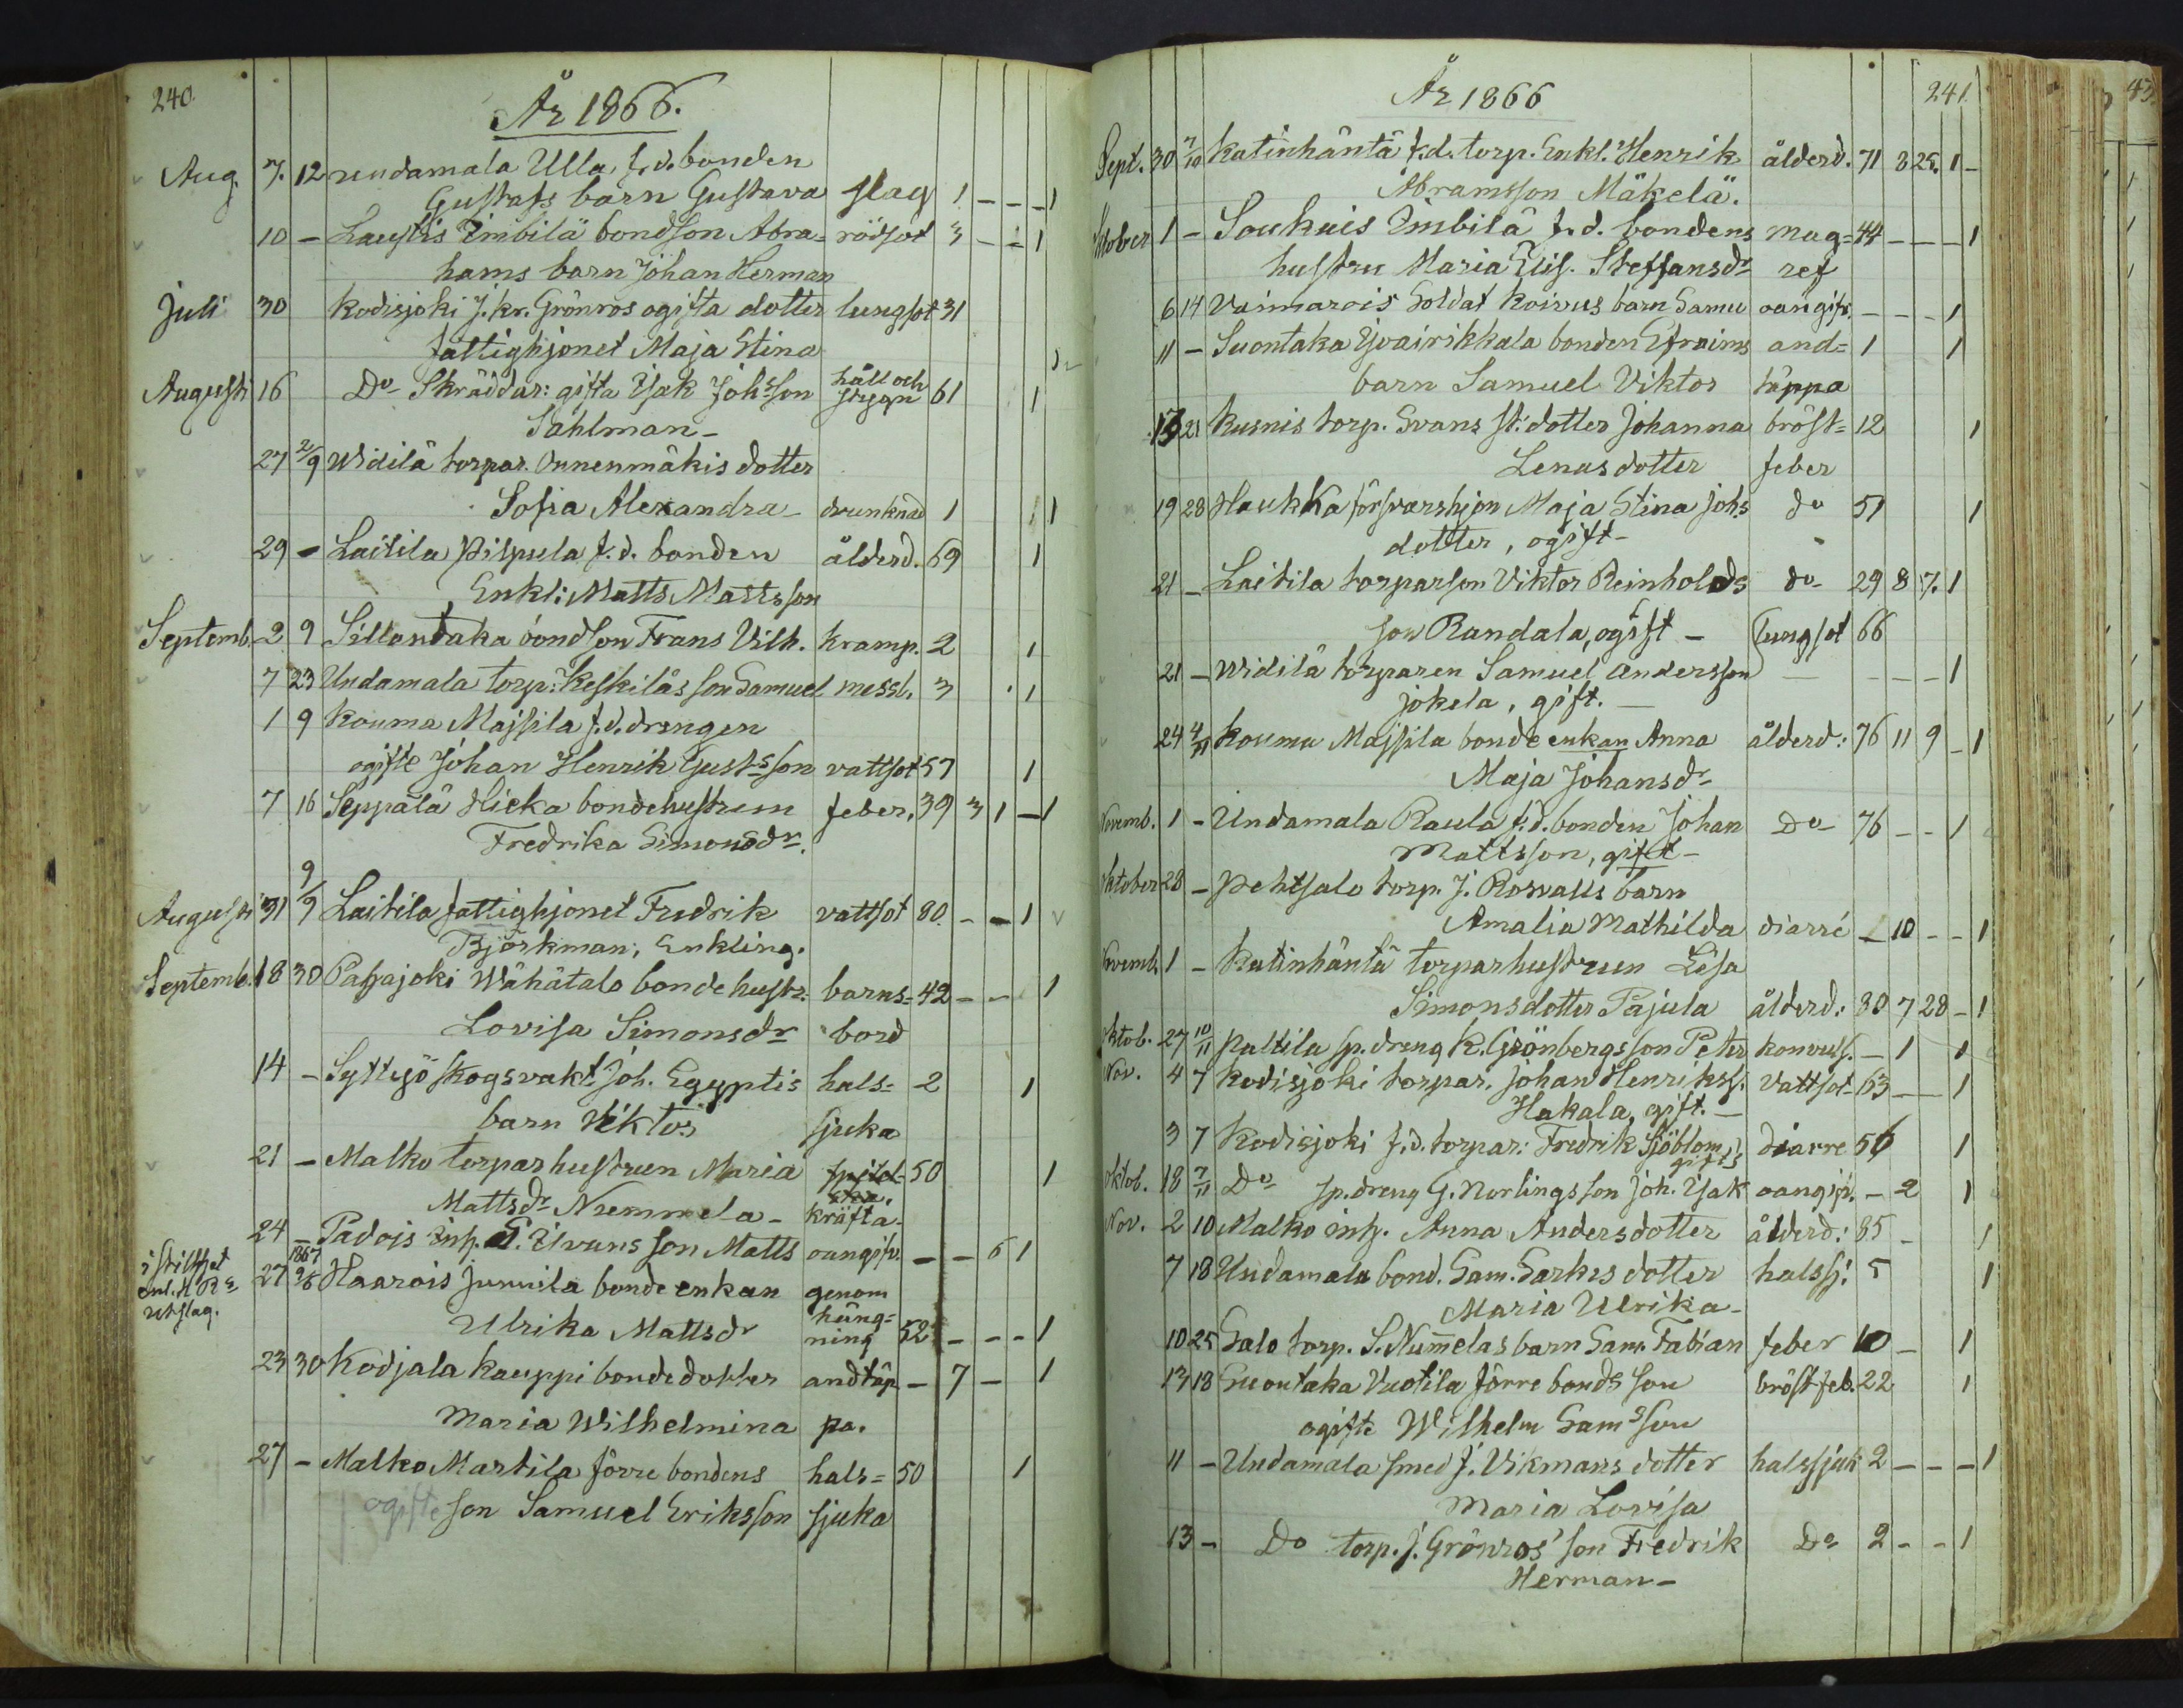 240
År 1866.
Aug. 7. 12 undamala Ulla, f.d. bonden
Gustafs barn Gustava slag 1 - - - 1
10 - Laustis Zimbilä bondson Abra- rödsot 3 - - 1
hams barn Johan Herman
Juli 30 Kodisjoki J. kr. Grönros ogifta dotter lungsot 31
fattighjonet Maja Stina
Augusti 16 Do Skräddar: gifta Isak Johsson håll och stygn 61 1
Sahlman-
27 2/9 Widilä torpar. Onnenmäkis dotter
Sofia Alexandra- drunknad 1 1 1
29 - Laitila Pilpula f.d. bonden ålderd. 69 1
Enkl: Matts Mattsson
Septemb. 2 9 Sillantaka bondson Frans Vilh. kramp. 2 1
7 23 Undamala torp: Keskiläs son Samuel messl. 3 1
1 9 Kouma Maisila f.d. drengen
ogifte Johan Henrik Gustsson vattsot 57 1
7 16 Seppälä Hicka bondehustrun feber, 39 3 1 - 1
Fredrika Simonsdr.
Augusti 31 9/9 Laitila fattighjonet Fredrik vattsot 80. - - 1
Björkman, Enkling.
Septemb. 18 30 Pappajoki Wähätalo bondehustr. barns- 42 - - 1
Lovisa Simonsdr bord
14 - Syttyjö Skogsvakt: Joh. Egyptis hals- 2 1
barn Viktor sjuka
21 - Malko torparhustrun Maria 50 1
Mattsdr Nummela- kräfta.
24 - Padois Inh. Evans son Matts oangifv. - - 6 1
i stillhet enl. utslag. 27 1867 Haarois Junnila bonde enkan genom
Ulrika Mattsdr häng- ning 52 - - - 1
23 30 Kodjala Kauppi bondedotter andtäp - 7 - 1
Maria Wilhelmina pa.
27 - Malko Martila förre bondens hals- 50 1
ogifte son Samuel Eriksson sjuka
År 1866
241
Sept. 30 7/10 Katinhäntä f.d. torp. Enkl. Henrik ålderd. 71 8 25. 1 -
Abramsson Mäkelä.
Oktober 1 - Soukais Zimbilä f.d. bondens mag- 44 - - - 1
hustru Maria Elis. Steffansdr ref
6 14 Vaimarois Soldat Koivus barn Samu oangifv. - - - 1
11 - Suontaka Yvairikkala bonden Efraims and- 1 1
barn Samuel Viktor täppa
13 21 Kusnis torp. Evans st: dotter Johanna bröst- 12 1
Lenasdotter feber
19 28 Haukka försvarshjon Maja Stina Johs do 51 1
dotter, ogift-
21 - Laitila torparson Viktor Reinholds do 29 8 17. 1
son Randala, ogift - lungsot 66
21 - Widilä torparen Samuel Andersson - - - - 1
Jokela, gift. -
24 4/11 Kouma Maisila bonde enkan Anna ålderd: 76 11 9 - 1
Maja Johansdr
Novemb. 1 - Undamala Raula f.d. bonden Johan Do 76 - - 1
Mattsson, gift-
Oktober 28 - Pehtsalo torp. J. Rosvalls barn
Amalia Mathilda diarré - 10 - - 1
Novemb. 1 - Katinhäntä torparhustrun Lisa
Simonsdotter Pajula ålderd: 80 7 28 - 1
Oktob. 27 10/11 Paltila sp. dreng K. Grönbergs son Peter konvuls. - 1 1
Nov. 4 7 Kodisjoki torpar. Johan Henrikss. Vattsot- 63 - - 1
Hakala, gift. -
3 7 Kodisjoki f.d. torpar: Fredrik Sjöblom diarre 56 1
gifts
Oktob. 18 7/11 Do sp. dreng G. Norlings son Joh. Isak oangifv. - 2 1
Nov. 2 10 Malko inh. Anna Andersdotter ålderd: 85 - 1
7 18 Undamala bond. Sam. Sarkes dotter halssj: 5 1
Maria Ulrika-
10 25 Salo torp. S. Nummelas barn Sam. Fabian feber 10 - 1
13 18 Suontaka Vuotila förre bonds son bröstfeb. 22 1
ogifte Wilhelm Samsson
11 - Undamala smed J. Vikmans dotter halssjuk 2 - - - 1
Maria Lovisa
13 - Do torp. J. Grönros' son Fredrik Do 2 - - 1
Herman-